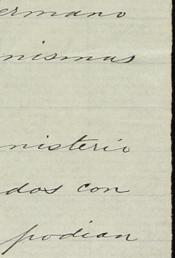 ermano
nismas
nisterio
dos con
podian